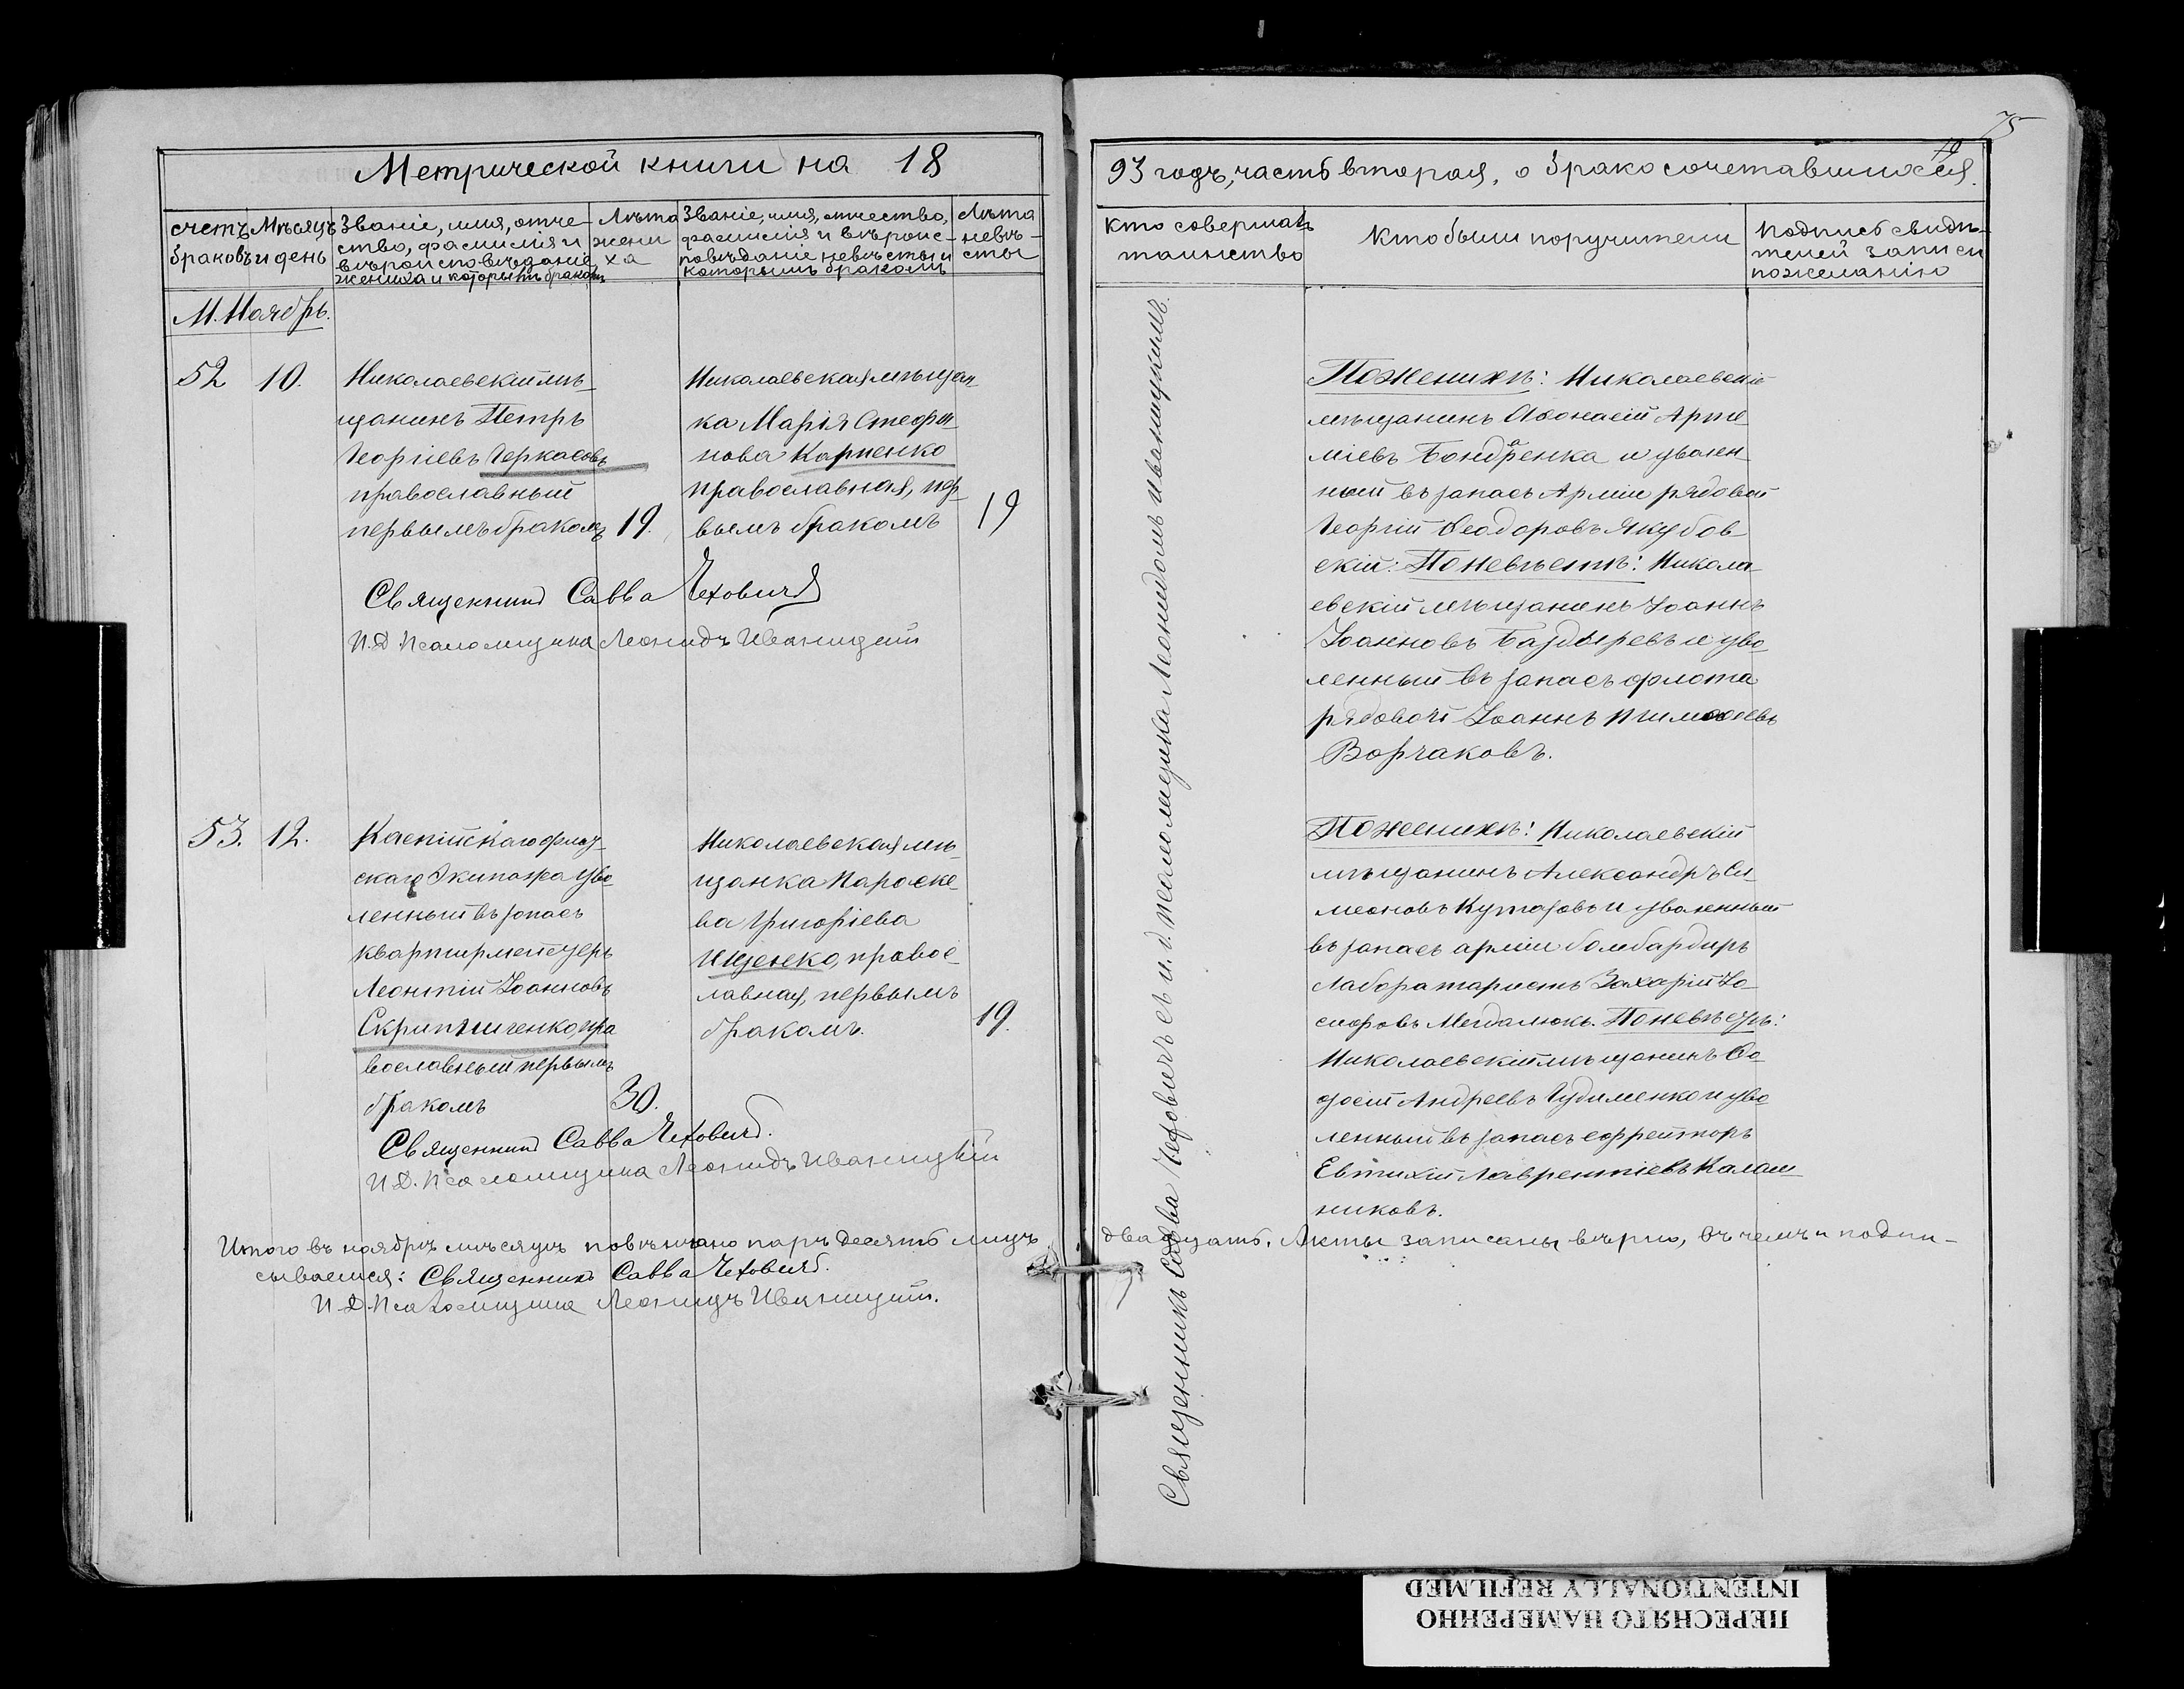 75
Метрической книги на 18
93 годъ, часть вторая, о бракосочетавшихся.
счетъ браковъ
Мѣсяцъ и день
Званіе, имя, отче-
ство, фамилія и
вѣроисповѣданіе
жениха и которымъ бракомъ
Лѣта
жени
ха
Званіе, имя, отчество,
фамилія и вѣроис-
повѣданіе невѣсты и
которымъ бракомъ
Лѣта
невѣ-
сты
Кто совершалъ
таинство
Кто были поручители
Подпись свидѣ-
телей записи
по желанію
М. Ноябрь.
52
10.
Николаевскій мѣ-
щанинъ Петръ
Георгіевъ Черкасовъ
православный
первымъ бракомъ
19.
Николаевская мѣщан
ка Марія Стефа-
нова Карпенко
православная, пер-
вымъ бракомъ
19
Священникъ Савва Чехович
И.Д. Псаломщика Леонидъ Иваницкій
По женихѣ: Николаевскій
мѣщанинъ Аѳонасій Арте-
міевъ Бондренка и уволен-
ный въ запасъ Арміи рядовой
Георгій Ѳеодоровъ Якубов-
скій: По невѣстѣ: Никола-
евскій мѣщанинъ Іоаннъ
Іоанновъ Баздыревъ и уво-
ленный въ запасъ флота
рядовой Іоаннъ Тимоѳеевъ
Ворчаковъ.
53.
12.
Каспійскаго флот-
скаго Экипажа уво-
ленный въ запасъ
квартирмейстеръ
Леонтій Іоанновъ
Скрипниченко, пра
вославный первымъ
бракомъ
30.
Николаевская мѣ-
щанка Параске-
ва Григоріева
Ищенко, правос-
лавная, первымъ
бракомъ.
19.
Священникъ Савва Чехович.
И.Д. Псаломщика Леонидъ Иваницкій
По женихѣ: Николаевскій
мѣщанинъ Александръ Си-
меоновъ Кутазовъ и уволенный
въ запасъ арміи бомбардиръ
Лаборатористъ Захарій Іо-
сифовъ По невѣстѣ:
Николаевскій мѣщанинъ Ѳо-
досій Андреевъ Чудименко и уво
ленный въ запасъ ефрейторъ
Евтихій Лаврентіевъ Калаш-
никовъ.
Священникъ Савва Чеховичъ съ и. д. псаломщика Леонидомъ Иваницкимъ.
Итого въ ноябрѣ мѣсяцѣ повѣнчано паръ десять лицъ двадцать. Акты записаны вѣрно, въ чемъ и подпи-
сываемся: Священникъ Савва Чехович.
И.Д. Псаломщика Леонидъ Иваницкій.
ПЕРЕСНЯТО НАМЕРЕННО
INTENTIONALLY REFILMED